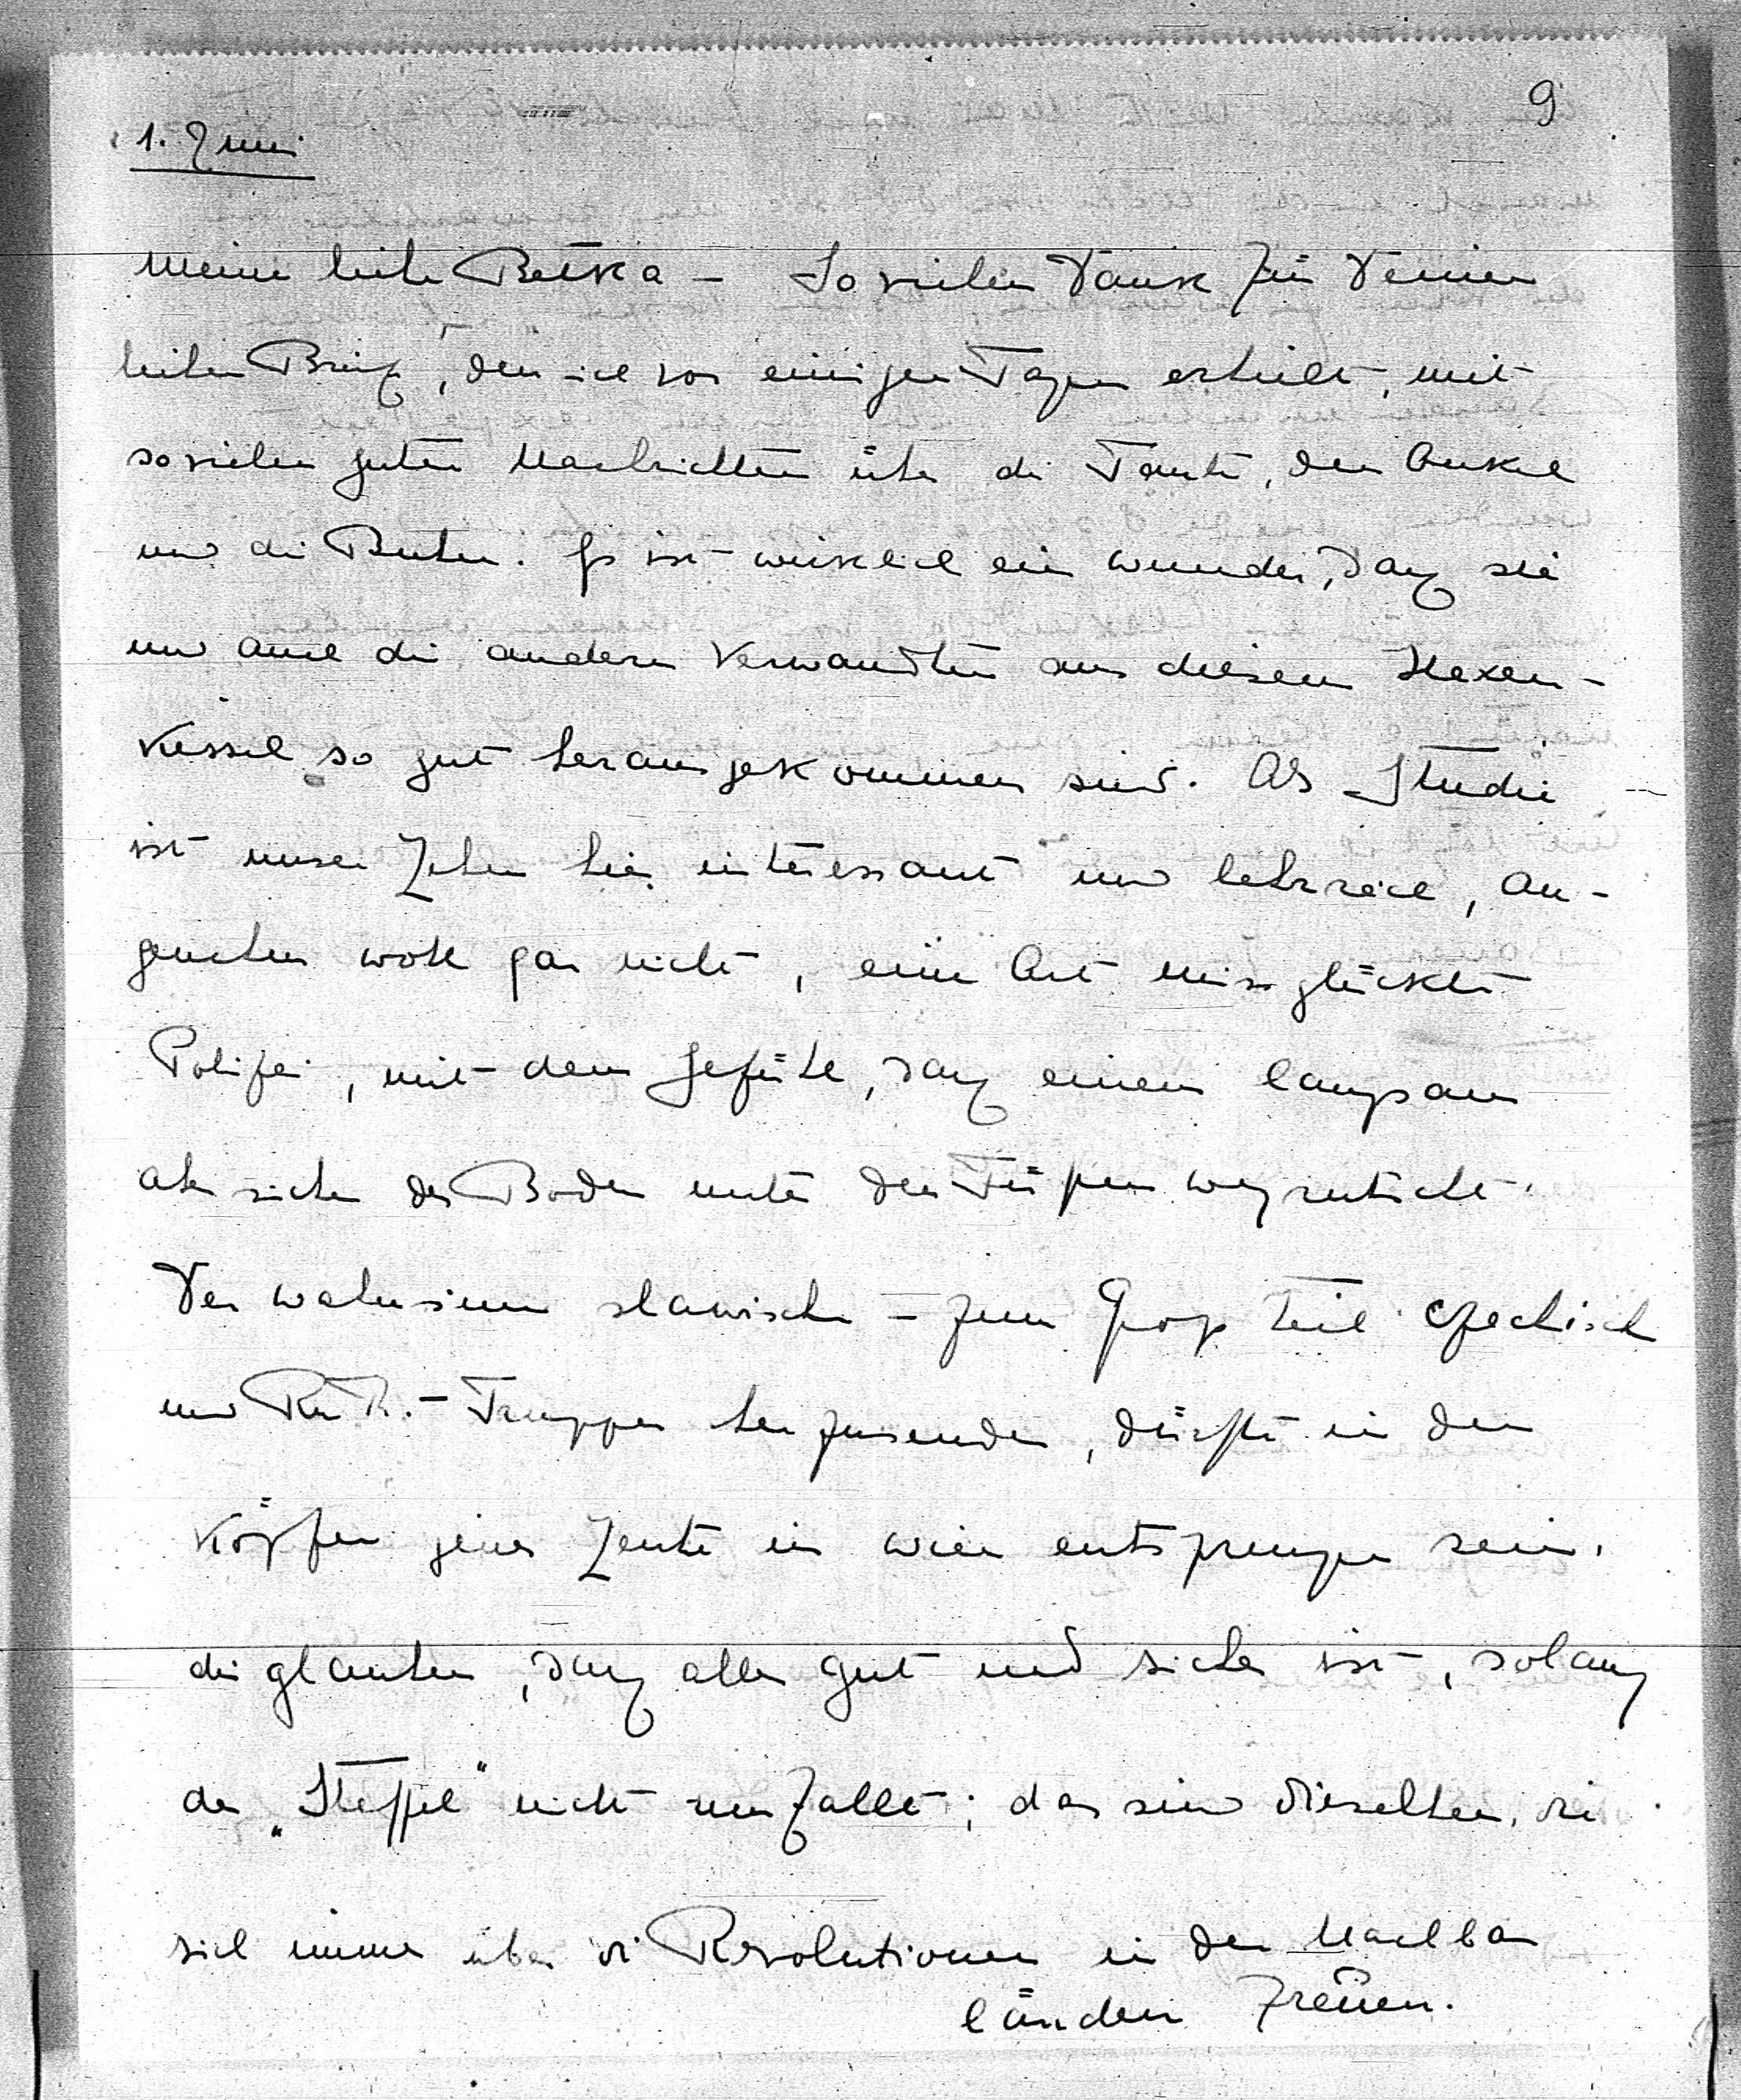 9
1. Juni
Meine liebe Betka – So vielen Dank für Deinen
lieben Brief, den ich vor einigen Tagen erhielt, mit
sovielen guten Nachrichten über die Tante, den Onkel
und die Buben. Es ist wirklich ein Wunder, daß sie
und auch die anderen Verwandten aus diesem Hexen-
kessel so gut herausgekommen sind. Als Studie
ist unser Leben hier interessant und lehrreich, an-
genehm wohl gar nicht, eine Art missglückte
Polizei, mit dem Gefühl, daß einem langsam
aber sicher der Boden unter den Füßen wegrutscht.
Der Wahnsinn slawische – zum Groß Teil czechisch
und Ru Th.- Truppen herzusenden, dürfte in den
Köpfen jener Leute in Wien entsprungen sein,
die glauben, daß alles gut und sicher ist, solang
der „Steffel" nicht umfällt; das sind dieselben, die
sich immer über die Revolutionen in den Nachbar
ländern freuen.